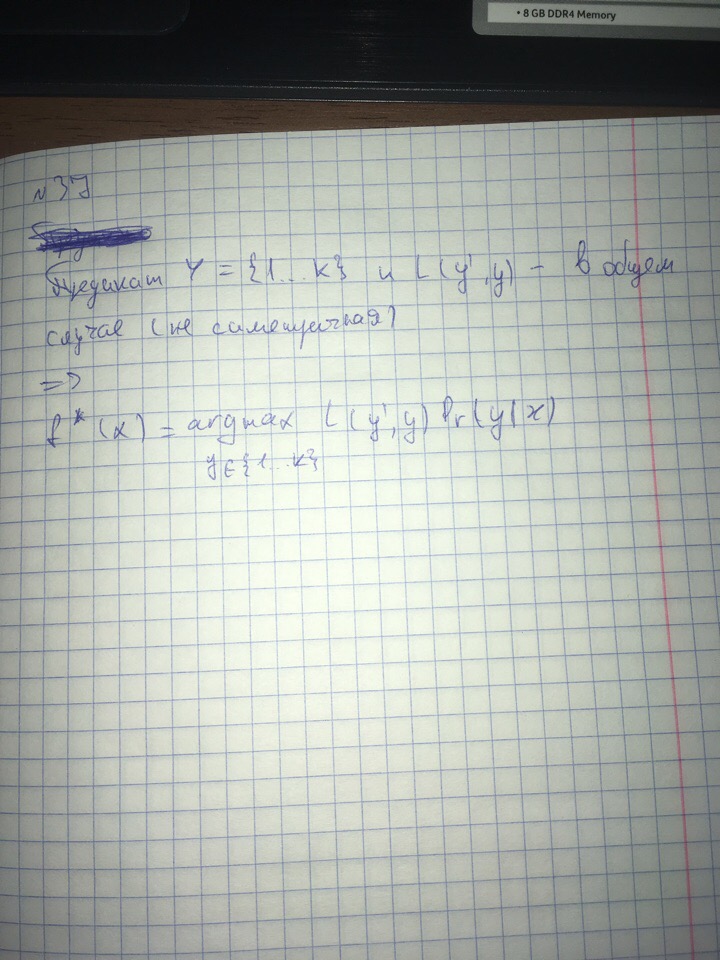 • 8 GB DDR4 Memory
№37
Предикат Y = {1...K} и L(y',y) - в общем
случае (не симетричная)
=>
f*(x) = argmax L(y',y) Pr(y|x)
y∈{1...K}